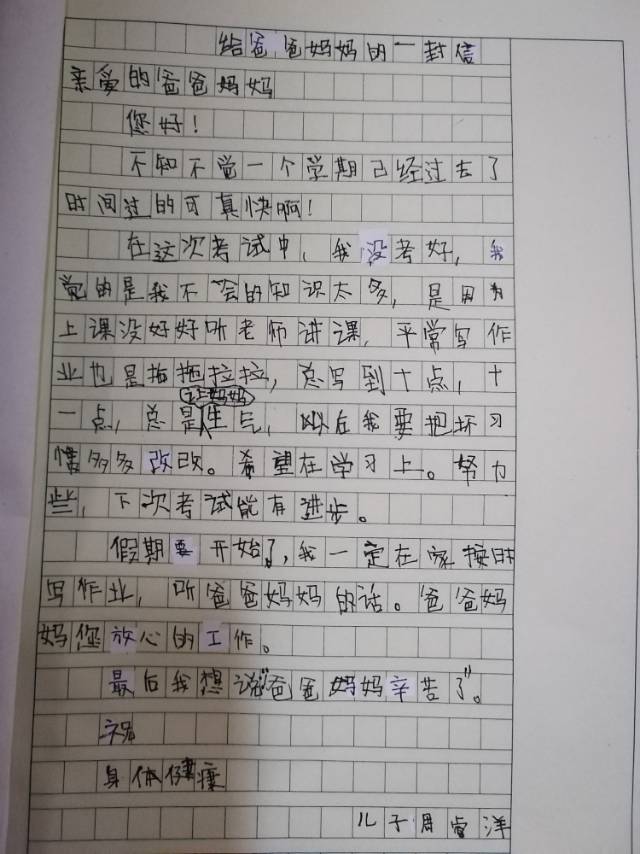 给爸爸妈妈的一封信
亲爱的爸爸妈妈
您好！
不知不觉一个学期己经过去了
时间过的可真快啊！
在这次考试中，我没考好，我
觉的是我不会的知识太多，是因为
上课没好好听老师讲课，平常写作
业也是拖拖拉拉，总写到十点，十
让妈妈
一点，总是生气，以后我要把坏习
惯多多改改。希望在学习上。努力
些，下次考试能有进步。
假期要开始了，我一定在家按时
写作业，听爸爸妈妈的话。爸爸妈
妈您放心的工作。
最后我想说“爸爸妈妈辛苦了”。
祝
身体健康
儿子周 洋